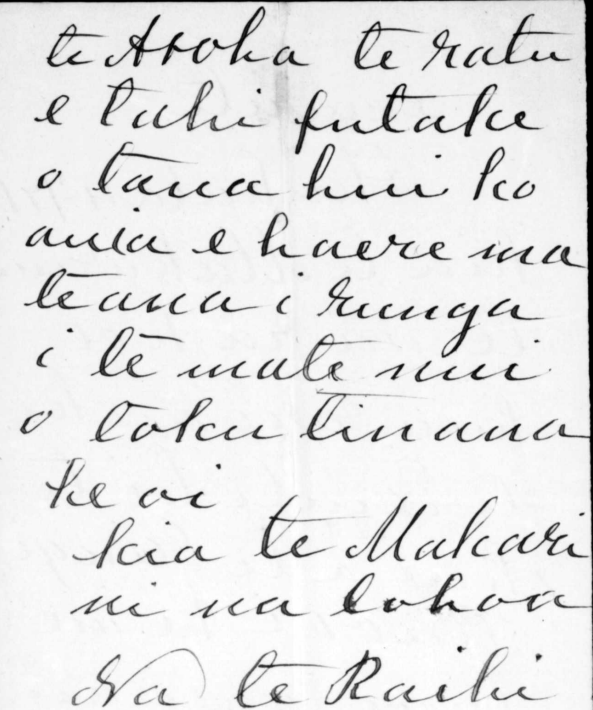 te Aroha te ratu
e tahi putake
o taua hui ko
auia e haere ma
teana i runga
i te mate nui
o toku tinana
heoi
kia te Makari
ni na tohoa
Na te Raihi